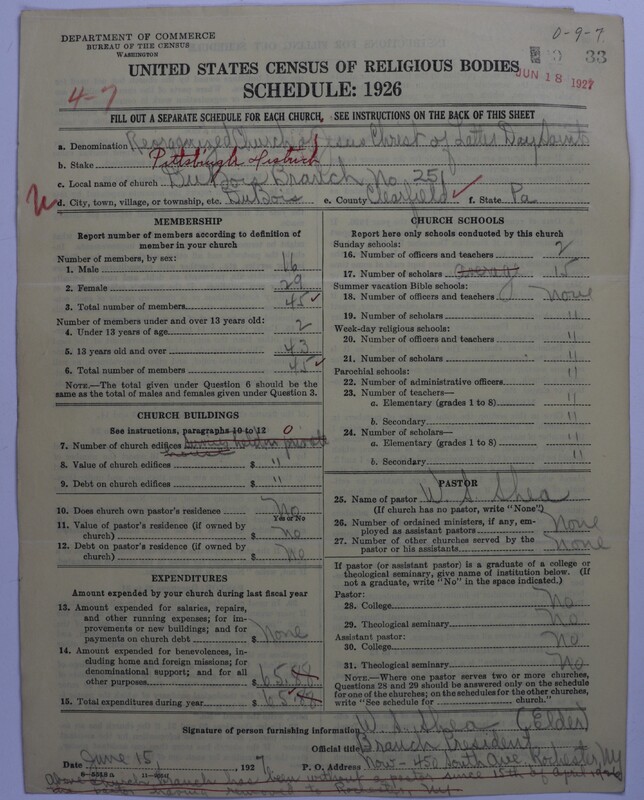 DEPARTMENT OF COMMERCE
BUREAU OF THE CENSUS
WASHINGTON
0-9-7
33
JUN 18 1927
UNITED STATES CENSUS OF RELIGIOUS BODIES
SCHEDULE: 1926
4-7
FILL OUT A SEPARATE SCHEDULE FOR EACH CHURCH. SEE INSTRUCTIONS ON THE BACK OF THIS SHEET
a. Denomination Reorganized Church of Jesus Christ of Latter Day Saints
b. Stake Pittsburgh District
c. Local name of church DuBois Branch No. 251
d. City, town, village, or township, etc. DuBois e. County Clearfield f. State Pa
MEMBERSHIP
Report number of members according to definition of member in your church
Number of members, by sex:
1. Male 16
2. Female 29
3. Total number of members 45
Number of members under and over 13 years old:
4. Under 13 years of age 2
5. 13 years old and over 43
6. Total number of members 45
NOTE.—The total given under Question 6 should be
same as the total of males and females given under Question 3.
CHURCH BUILDINGS
See instructions, paragraphs 10 to 12
7. Number of church edifices 0
8. Value of church edifices $ "
9. Debt on church edifices $ "
10. Does church own pastor's residence No
Yes or No
11. Value of pastor's residence (if owned by
church) $ no
12. Debt on pastor's residence (if owned by
church) $ No
EXPENDITURES
Amount expended by your church during last fiscal year
13. Amount expended for salaries, repairs,
and other running expenses; for im-
provements or new buildings; and for
payments on church debt $ None
14. Amount expended for benevolences, in-
cluding home and foreign missions; for
denominational support; and for all
other purposes $ 65.88
15. Total expenditures during year $ 65.88
CHURCH SCHOOLS
Report here only schools conducted by this church
Sunday schools:
16. Number of officers and teachers 2
17. Number of scholars average 15
Summer vacation Bible schools:
18. Number of officers and teachers None
19. Number of scholars "
Week-day religious schools:
20. Number of officers and teachers "
21. Number of scholars "
Parochial schools:
22. Number of administrative officers "
23. Number of teachers—
a. Elementary (grades 1 to 8) "
b. Secondary "
24. Number of scholars—
a. Elementary (grades 1 to 8) "
b. Secondary "
PASTOR
25. Name of pastor W. S. Shea
(If church has no pastor, write "None")
26. Number of ordained ministers, if any, em-
ployed as assistant pastors None
27. Number of other churches served by the
pastor or his assistants None
If pastor (or assistant pastor) is a graduate of a college or
theological seminary, give name of institution below. (If
not a graduate, write "No" in the space indicated.)
Pastor:
28. College No
29. Theological seminary No
Assistant pastor:
30. College No
31. Theological seminary No
NOTE.—Where one pastor serves two or more churches,
Questions 28 and 29 should be answered only on the schedule
for one of the churches; on the schedules for the other churches,
write "See schedule for church."
Signature of person furnishing information W. S. Shea (Elder)
Official title Branch President
Date June 15, 1927 P. O. Address Now - 450 South Ave. Rochester, NY
Above church branch has been without a pastor since 15th of April, 1926